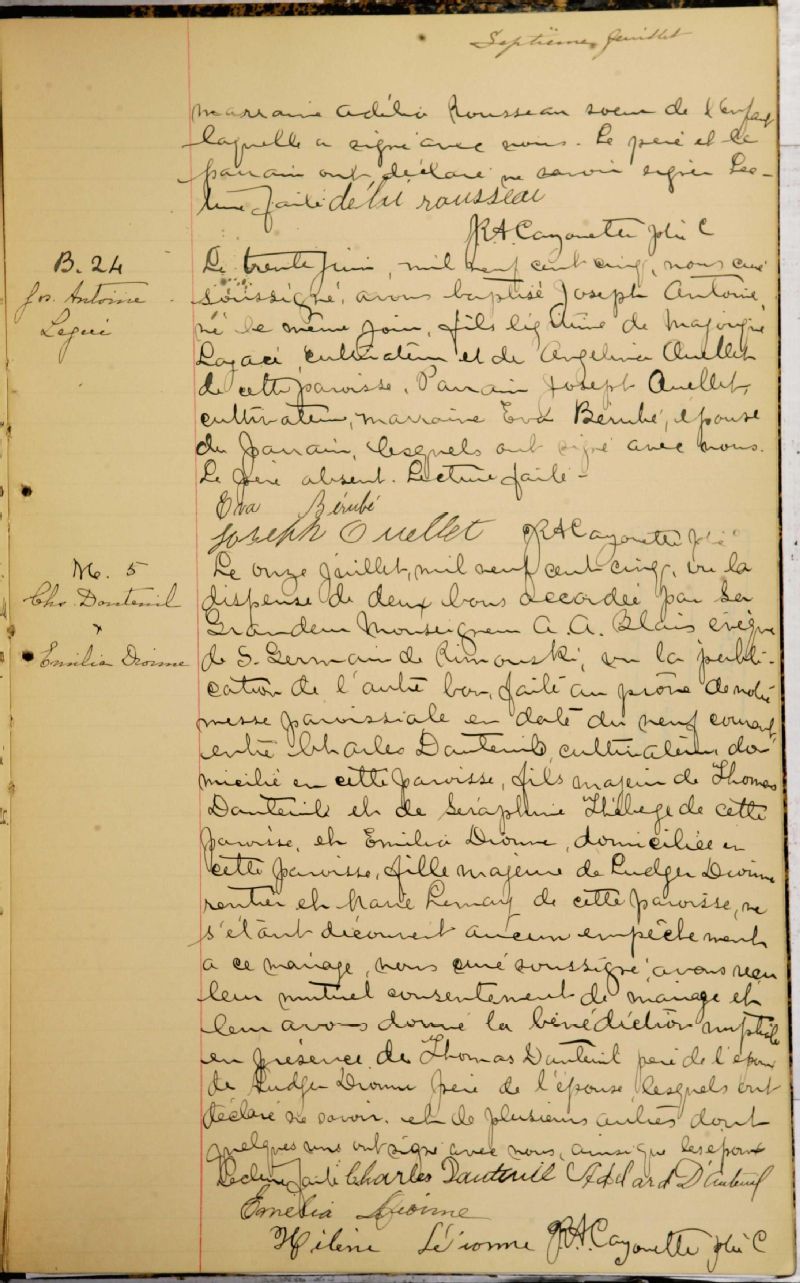 Septième feuillet
marraine Adélia Rousseau soeur de l'Enfant
laquelle a signé avec nous. Le père et le
parrain ont déclaré ne savoir signer Lec-
ture faite délui rousseau
JRA. Cayouette Ptre C
B. 24
Jos. Antoine
Le trente Juin, mil neuf cent cinq, nous curé
soussigné, avons baptisé Joseph Antoine,
né le même join, fils légitime de Majorique
Lagacé, cultivateur et de Angelina Ouellet
de cette paroisse. Parrain Joseph Ouellet,
cultivateur, marraine Eva Bérubé, épouse
du parrain, lesquels ont signé avec nous.
Le père absent. Lecture faite -
Eva Bérubé
Joseph Ouellet JRA Cayouette Ptre
M. 5
Chs Dauteuil
x
Emilia Dionne
Le onze juillet, mil neuf cent cinq, vu la
dispense de deux bans accordée par Sa
Grandeur Monseigneur A. A. Blais évêque
de S. Germain de Rimouski, vu la publi-
cation de l'autre ban, faite au prône de notre
messe paroissiale en date du neuf courant
entre Charles Dauteuil, cultivateur, do-
micilié en cette paroisse, fils majeur de Thomas
Dauteuil et de Séraphine Thébege de cette
paroisse, et Emilia Dionne, domiciliée en
cette paroisse, fille majeure de Ludger Dionne
rentier et Marie Lemay de cette paroisse, ne
s'étant découvert aucun empêchement
a ce mariage, nous curé soussigné, avons reçu
leur mutuel consentement de mariage et
leur avons donné la bénédiction nuptiale
en présence de Thomas Dauteuil père de l'époux
de Ludger Dionne père de l'épouse, lesquels ont
déclaré ne savoir, et de plusieurs autres dont
quelques uns ont signé avec nous, ainsi que les époux
Lecture faite Charles Dauteuil Addard D'auteuil
Emelia Dionne
Hélène Dionne JRA. Cayouette Ptre C